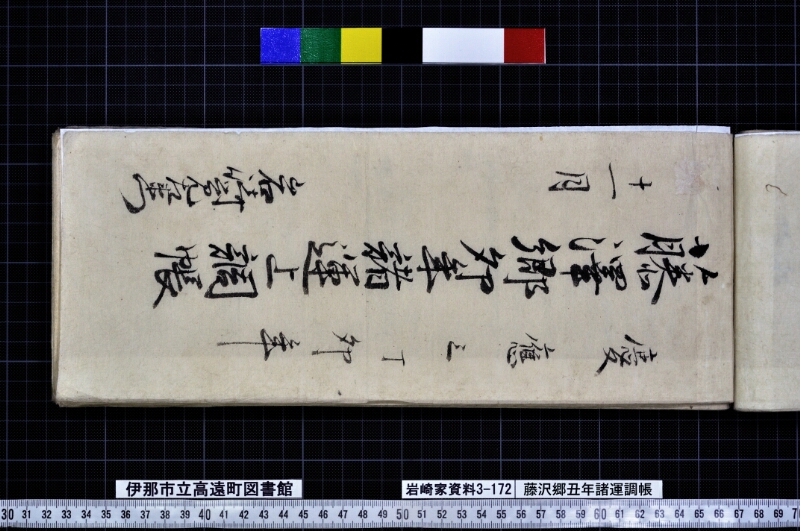 慶應三丁卯年
藤澤郷卯年諸運上調帳
十一月
伊那市立高遠町図書館
岩崎家資料3-172
藤沢郷丑年諸運調帳
30 31 32 33 34 35 36 37 38 39 40 41 42 43 44 45 46 47 48 49 50 51 52 53 54 55 56 57 58 59 60 61 62 63 64 65 66 67 68 69